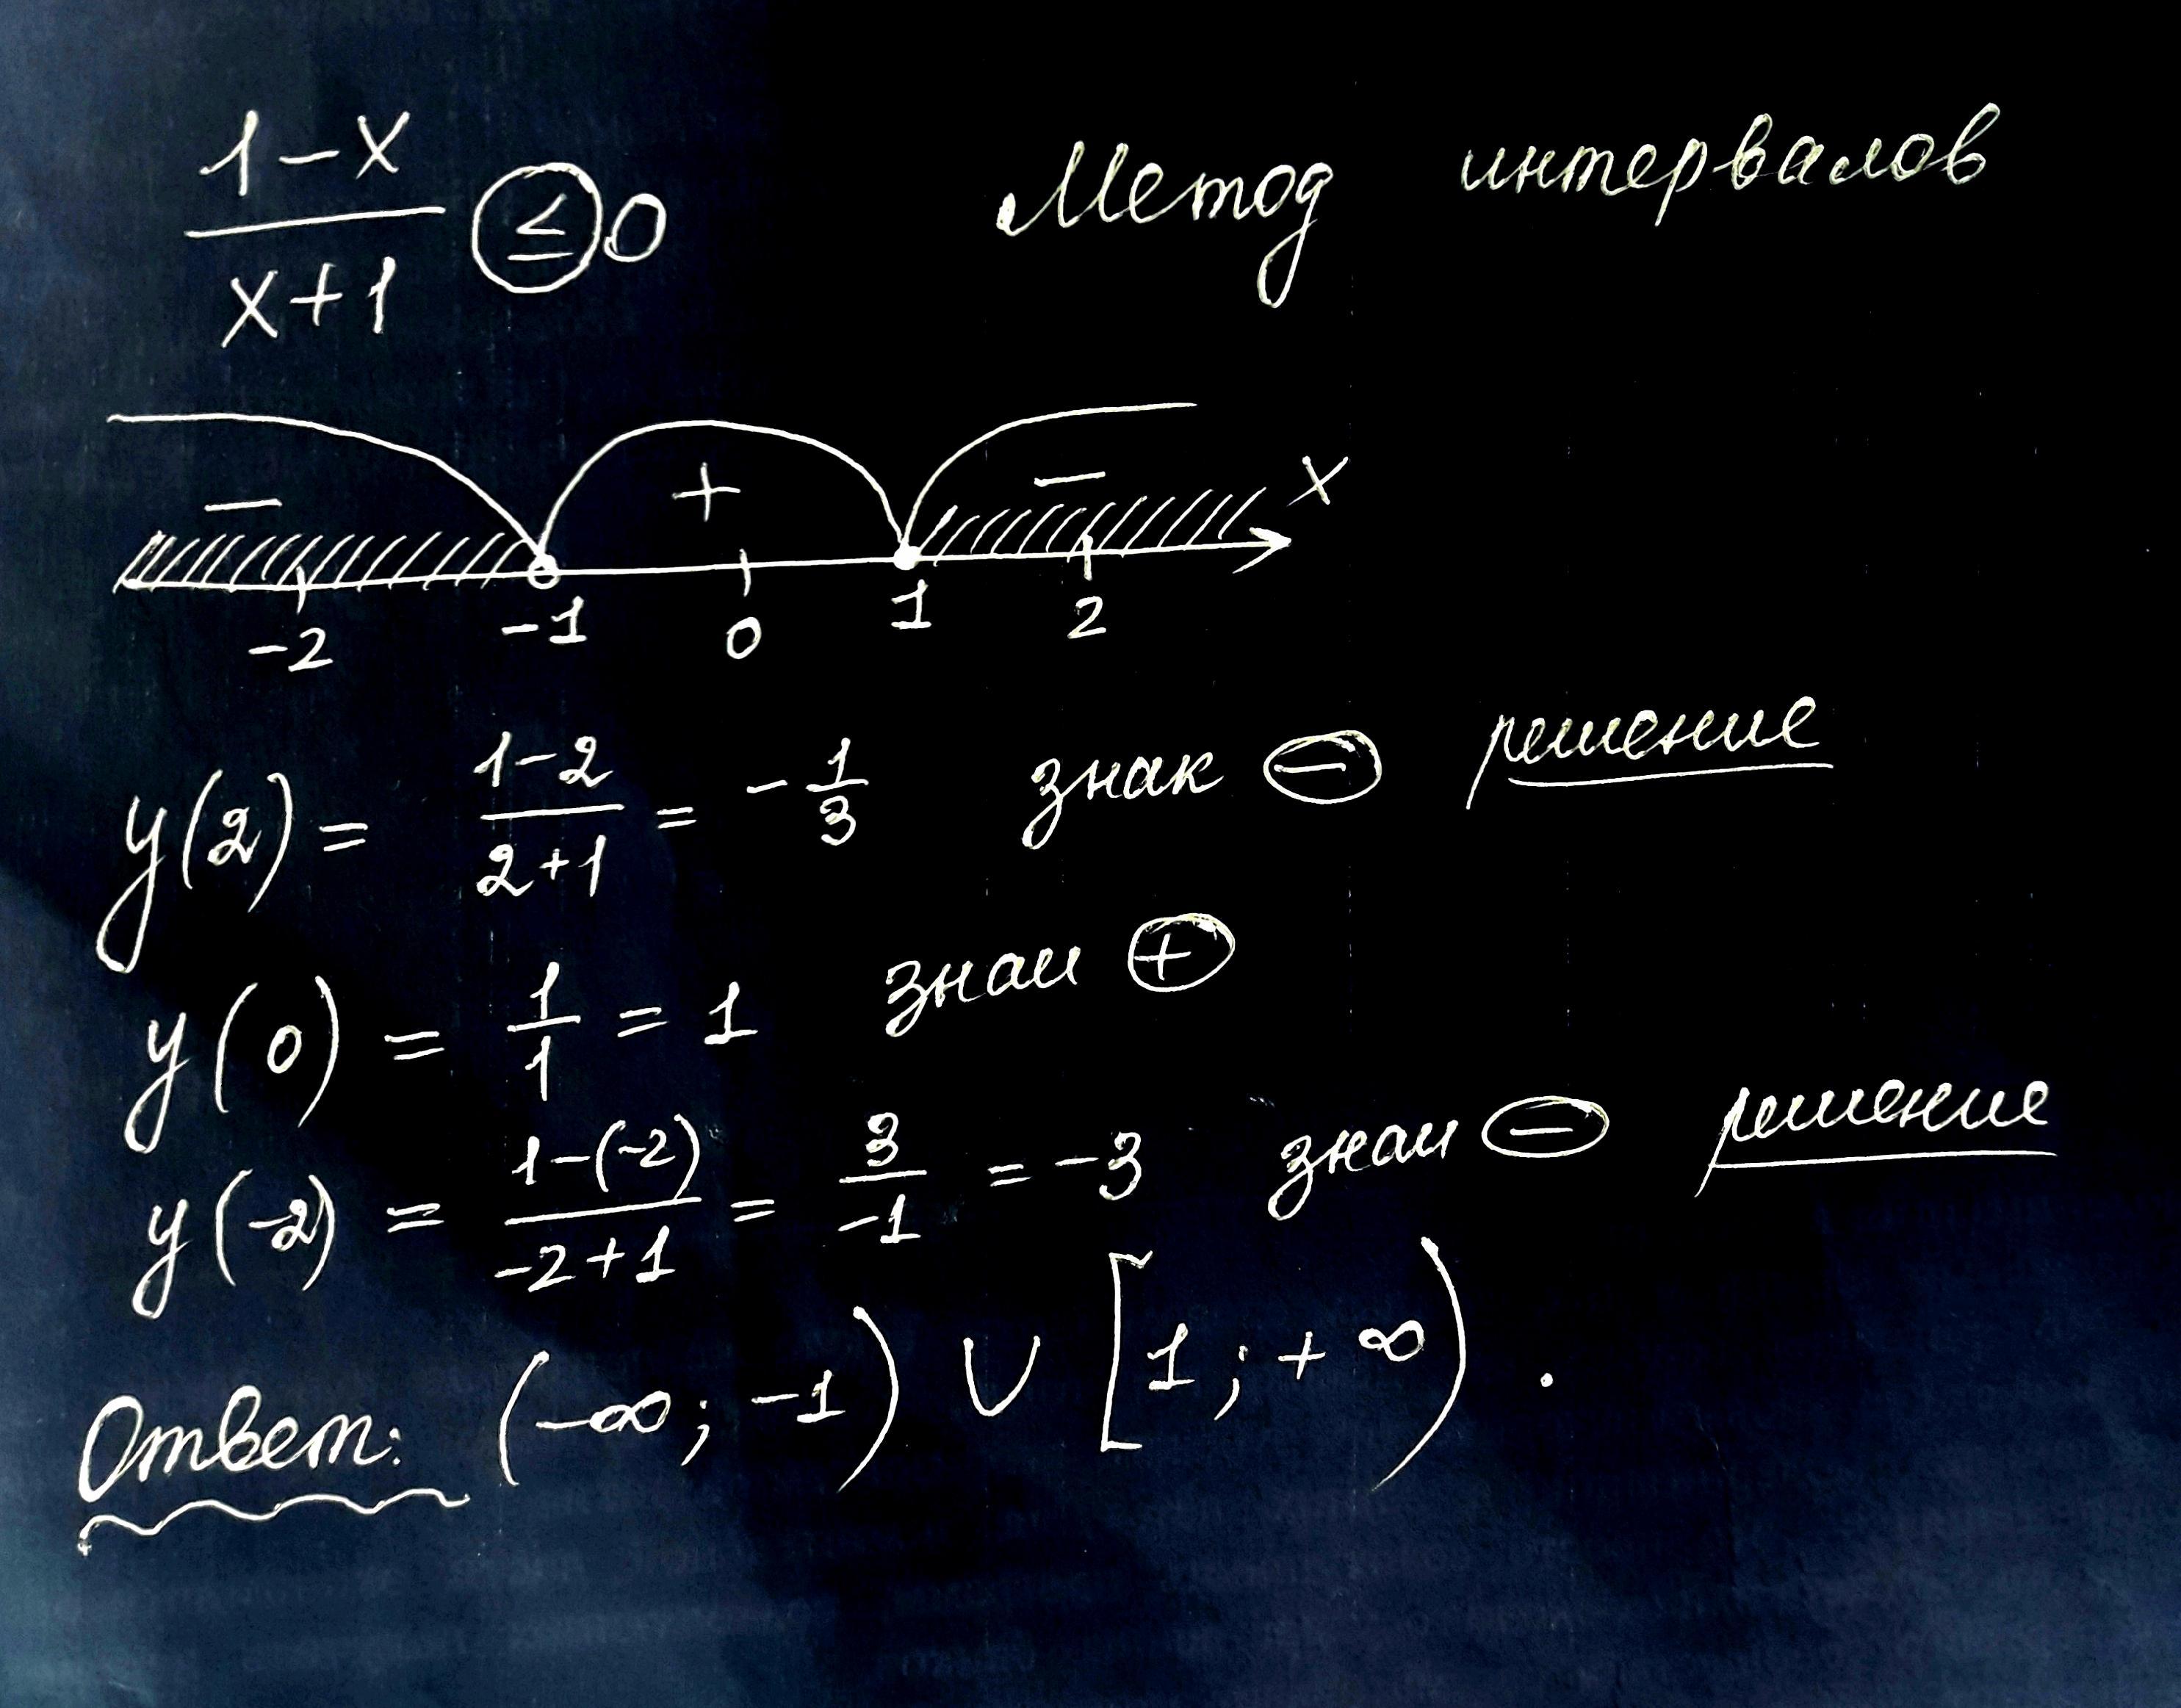 (1-x)/(x+1) ≤ 0 Метод интервалов
- + - x
-2 -1 0 1 2
y(2) = (1-2)/(2+1) = -1/3 знак ⊖ решение
y(0) = 1/1 = 1 знак ⊕
y(-2) = (1-(-2))/(-2+1) = 3/-1 = -3 знак ⊖ решение
Ответ: (-∞; -1) ∪ [1; +∞).